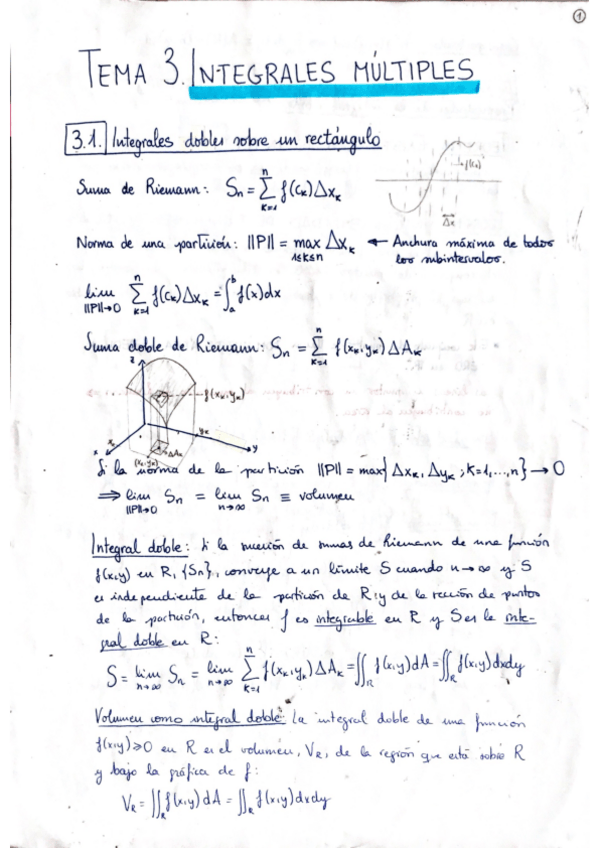 1
TEMA 3. INTEGRALES MÚLTIPLES
3.1. Integrales dobles sobre un rectángulo
f(cₖ)
Δx
Suma de Riemann: Sₙ = Σₖ₌₁ⁿ f(cₖ)Δxₖ
Norma de una partición: ||P|| = max Δxₖ 1≤k≤n ← Anchura máxima de todos
los subintervalos.
lim ||P||→0 Σₖ₌₁ⁿ f(cₖ)Δxₖ = ∫ₐᵇ f(x)dx
Suma doble de Riemann: Sₙ = Σₖ₌₁ⁿ f(xₖ,yₖ)ΔAₖ
z
f(xₖ,yₖ)
yₖ
xₖ
ΔAₖ
x
(xₖ,yₖ)
y
Si la norma de la partición ||P|| = max{Δxₖ, Δyₖ; k=1,...,n} → 0
⇒ lim ||P||→0 Sₙ = lim n→∞ Sₙ ≡ volumen
Integral doble: Si la sucesión de sumas de Riemann de una función
f(x,y) en R, {Sₙ}, converge a un límite S cuando n→∞ y S
es independiente de la partición de R y de la sección de puntos
de la partición, entonces f es integrable en R y S es la inte-
gral doble en R:
S = lim n→∞ Sₙ = lim n→∞ Σₖ₌₁ⁿ f(xₖ,yₖ)ΔAₖ = ∬_R f(x,y)dA = ∬_R f(x,y)dxdy
Volumen como integral doble: La integral doble de una función
f(x,y)≥0 en R es el volumen, V_R, de la región que está sobre R
y bajo la gráfica de f:
V_R = ∬_R f(x,y)dA = ∬_R f(x,y)dxdy